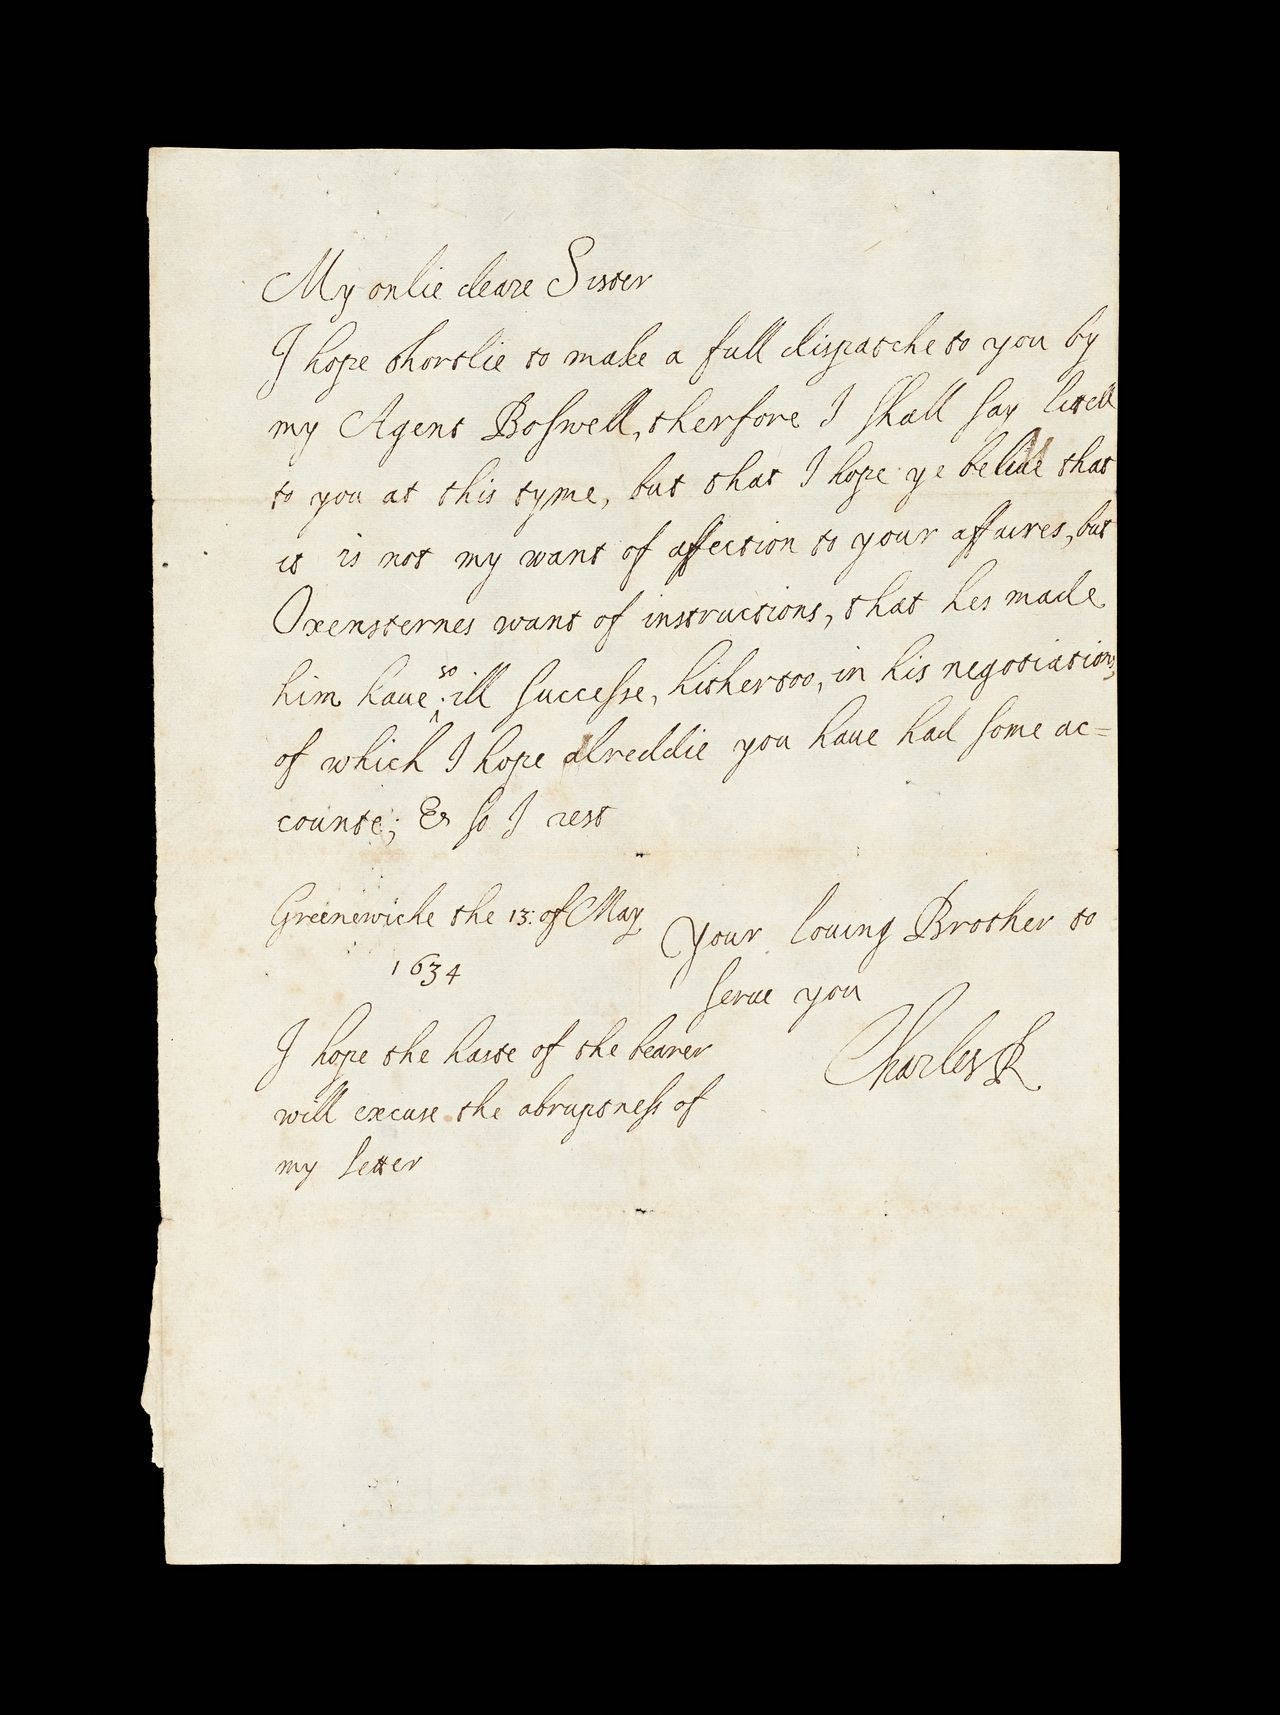 My onlie deare Sister
I hope shortlie to make a full dispatche to you by
my Agent Boswell, therfore I shall say litell
to you at this tyme, but that I hope ye beliue that
it is not my want of affection to your affaires, but
Oxensternes want of instructions, that hes made
him haue so ill successe, hithertoo, in his negotiation,
of which I hope alreddie you haue had some ac=
counte; & so I rest
Greenewiche the 13: of May
1634
Your louing Brother to
serue you
Charles R
I hope the haste of the bearer
will excuse the abruptness of
my letter